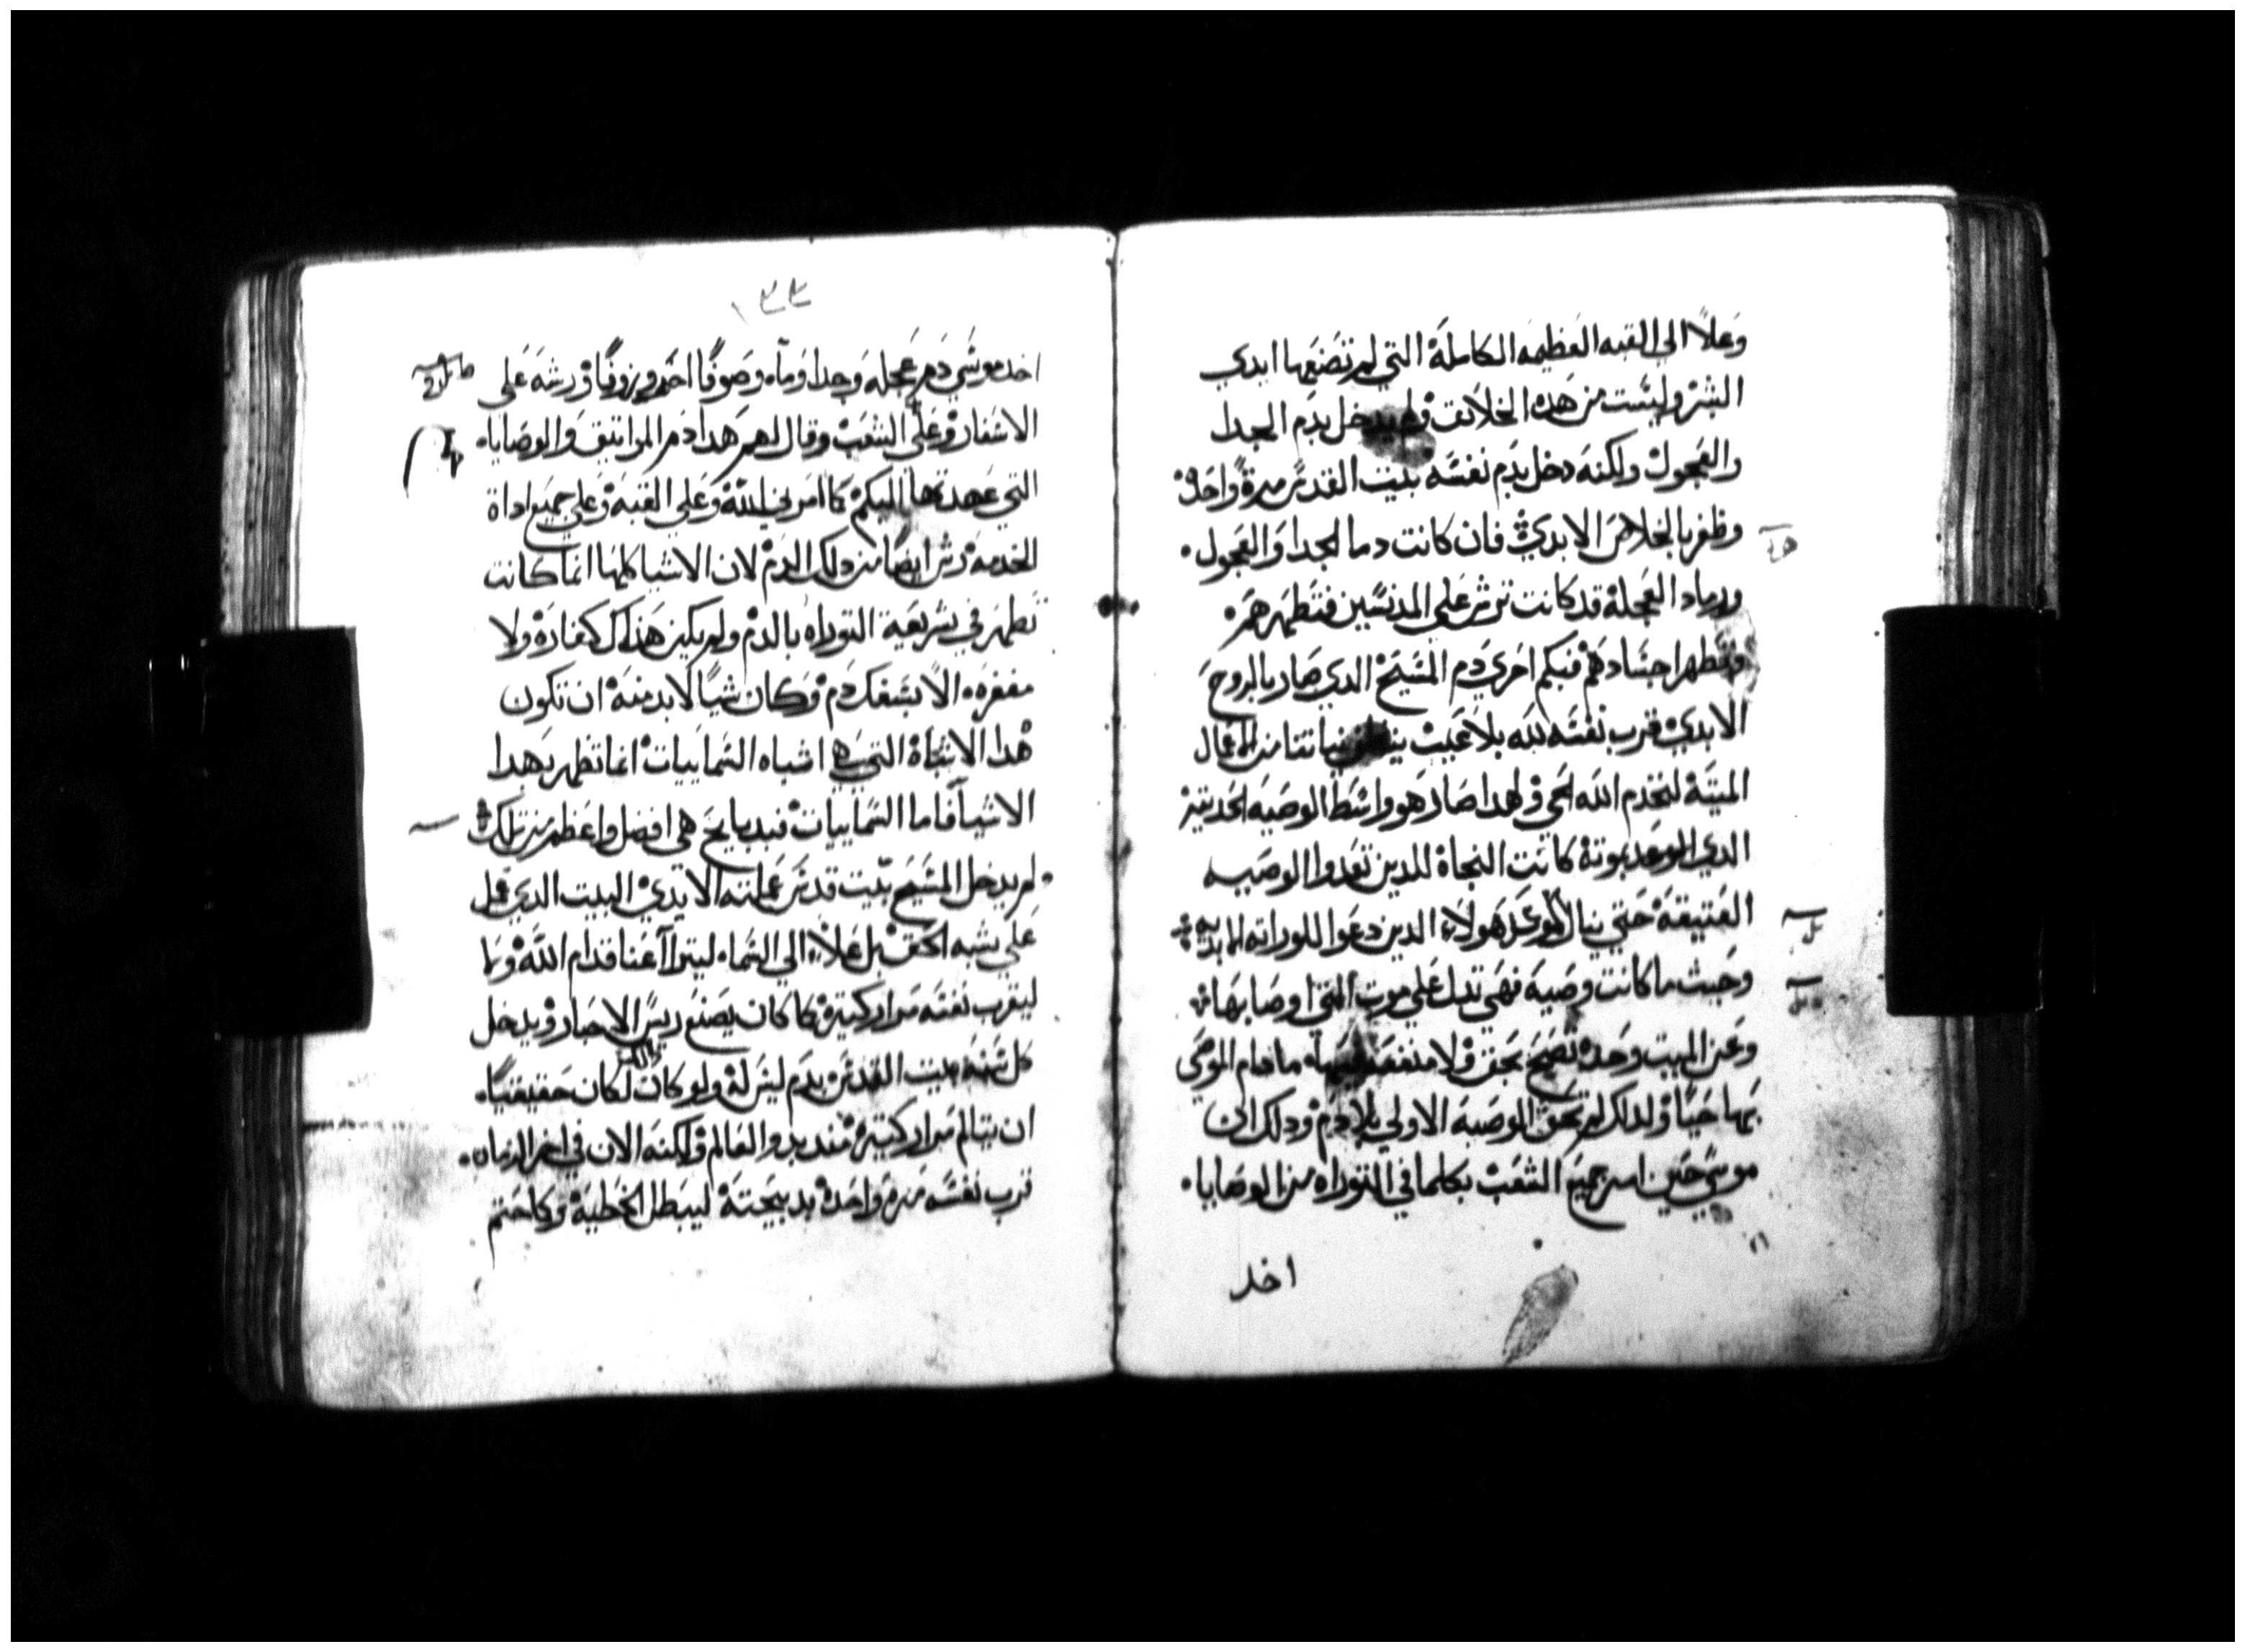 وعلا الى القبه العظيمه الكاملة التي لم تصنعها ايدي
البشر وليست من هده الخلائق ولم يدخل بدم الجدا
والعجول ولكنه دخل بدم نفسه بيت القدس مرة واحدة
وظفر بالخلاص الابدي فان كانت دما الجدا والعجول
ورماد العجلة قد كانت ترش على المدنسين فتطهرهم
وتطهر اجسادهم فبكم احري دم المسيح الدي صار بالروح
الابدي قرب نفسه لله بلا عيب نياتنا من الاعمال
الميتة لنخدم الله الحي ولهدا صار هو واسط الوصيه الحديثة
الدي بموته كانت النجاة للدين تعدوا الوصيه
العتيقة حتي ينال الوعد هولاء الدين دعوا للوراثه الابديه
وحيث ما كانت وصية فهي تدل علي موت الدي اوصا بها
وعن الميت وحده تصح بحق ولا منفعة فيها ما دام الموصي
بها حيا ولدلك لم تحق الوصية الاولي بلا دم ودلك ان
موسي حين امر جميع الشعب بكلما في التوراه من الوصايا
اخد
١٣٣
اخد موسي دم عجله وجدا وماء وصوفا احمر وزوفا ورشه على
الاسفار وعلى الشعب وقال لهم هدا دم المواثيق والوصايا
التي عهدتها اليكم كما امرني الله وعلى القبة وعلى جميع اداة
الخدمة رش ايضا من دلك الدم لان الاشيا كلها انما كانت
تطهر في شريعة التوراه بالدم ولم يكن هناك كفارة ولا
مغفره الا بسفك دم وكان شيا لا بد منه ان تكون
هدا الاشباة التي هي اشباه السمايات انما تطهر بهدا
الاشيا فاما السماييات فبدبايح هي افضل واعظم من تلك
لم يدخل المسيح بيت قدس عملته الايدي البيت الدي عمل
علي شبه الحق بل علا الي السماء ليترا عنا قدام الله وما
ليقرب نفسه مرار كتيرة كما كان يصنع ريس الاحبار ويدخل
كل سنه بيت القدس بدم ليس له ولو كان لكان حقيقيا
ان يتالم مرار كتيرة مند بدو العالم ولكنه الان في اخر الزمان
قرب نفسه مرة واحدة بدبيحته ليبطل الخطية وكما حتم